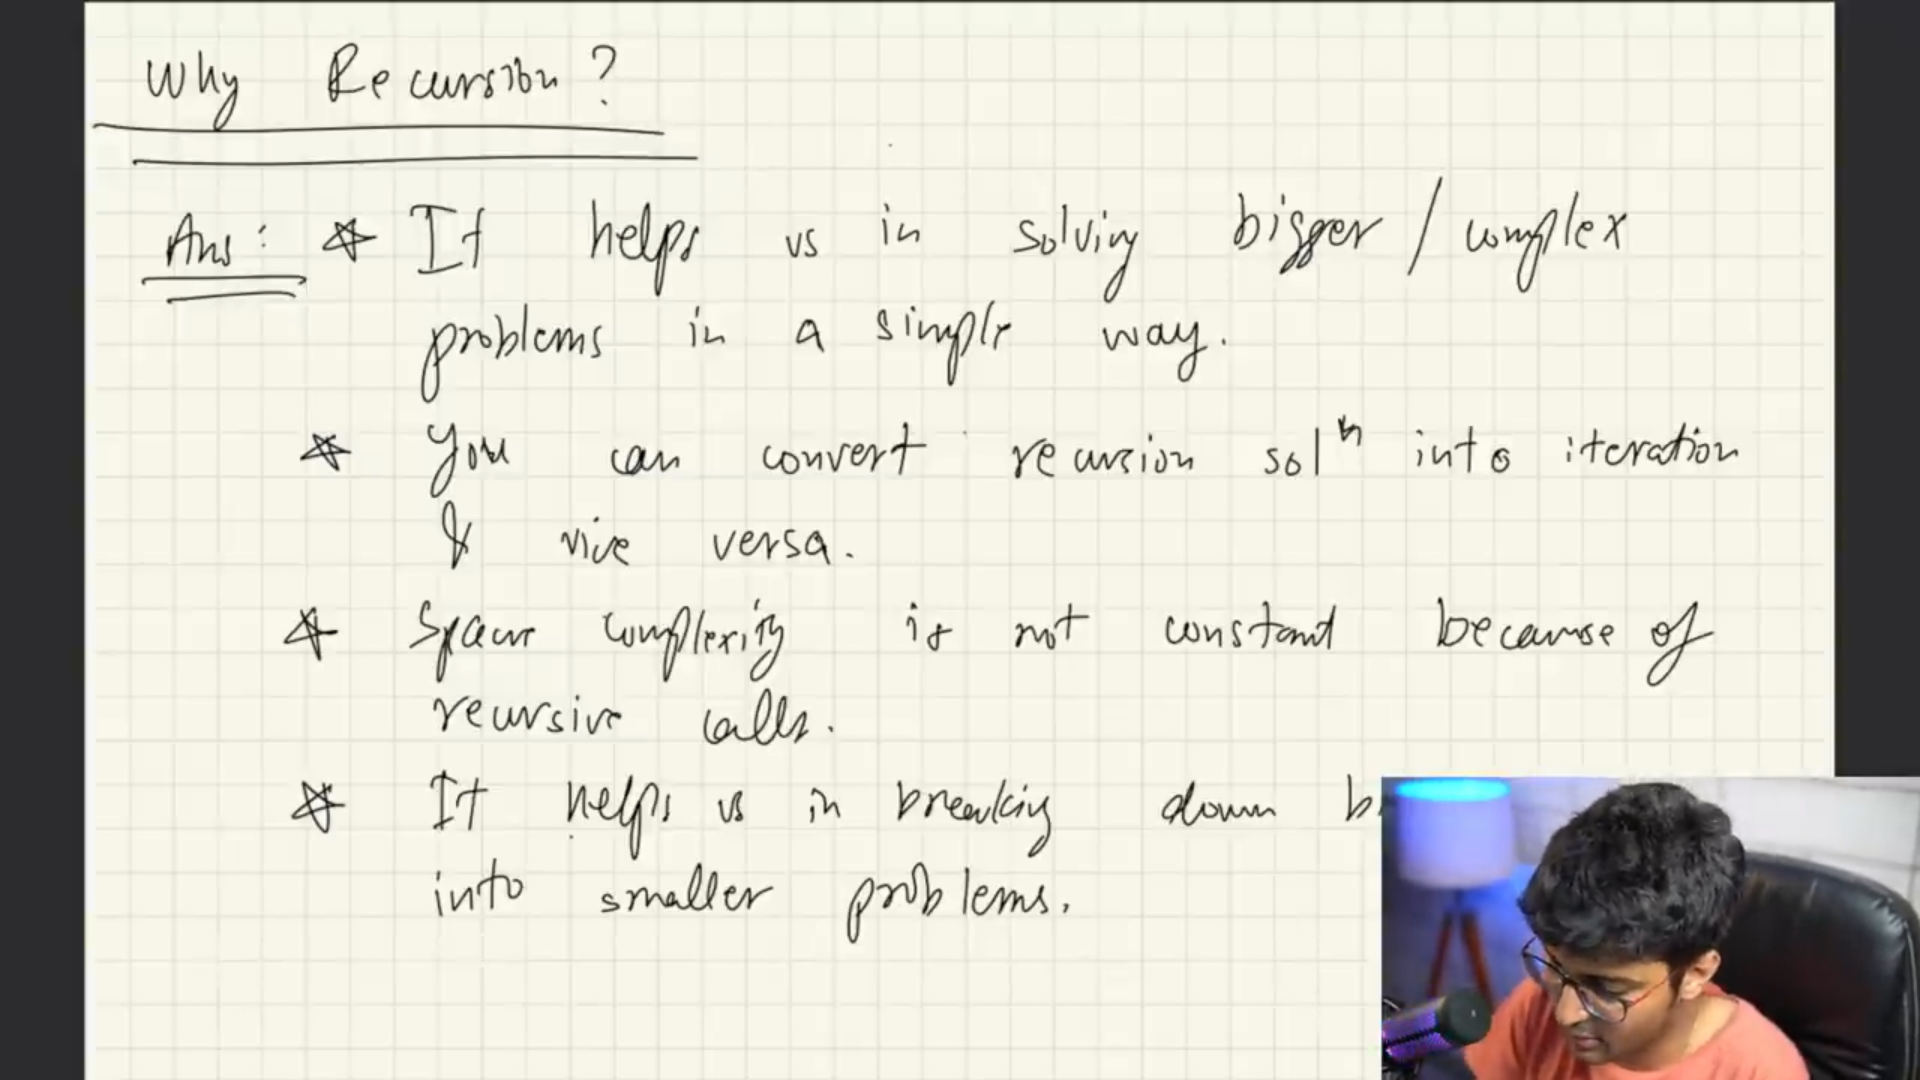 Why Recursion?
Ans: It helps us in solving bigger / complex
problems in a simple way.
You can convert recursion solⁿ into iteration
& vice versa.
Space complexity is not constant because of
recursive calls.
It helps us in breaking down
into smaller problems.